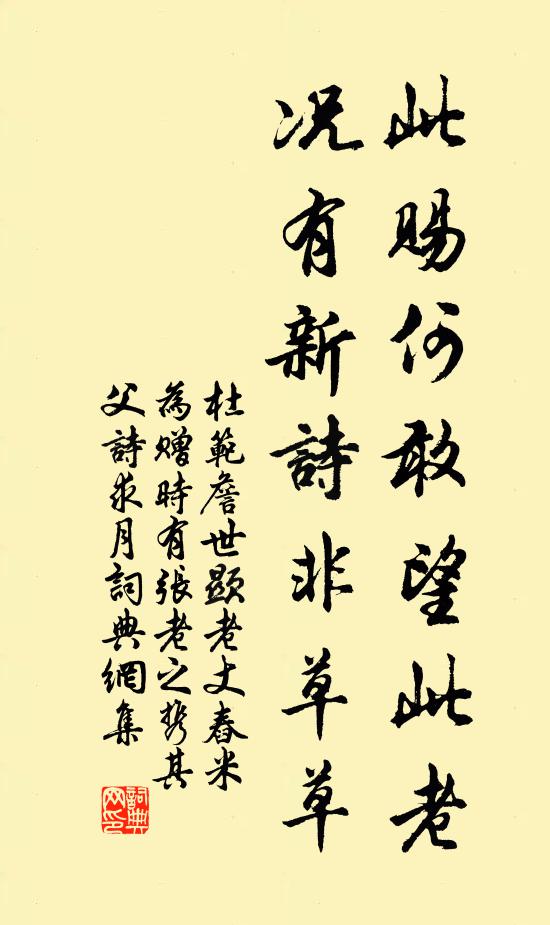 此賜何敢望此老
况有新詩非草草
杜範詹世顯老丈舂米
為贈時有張老之携其
父詩求月詞典網集
詞典網印